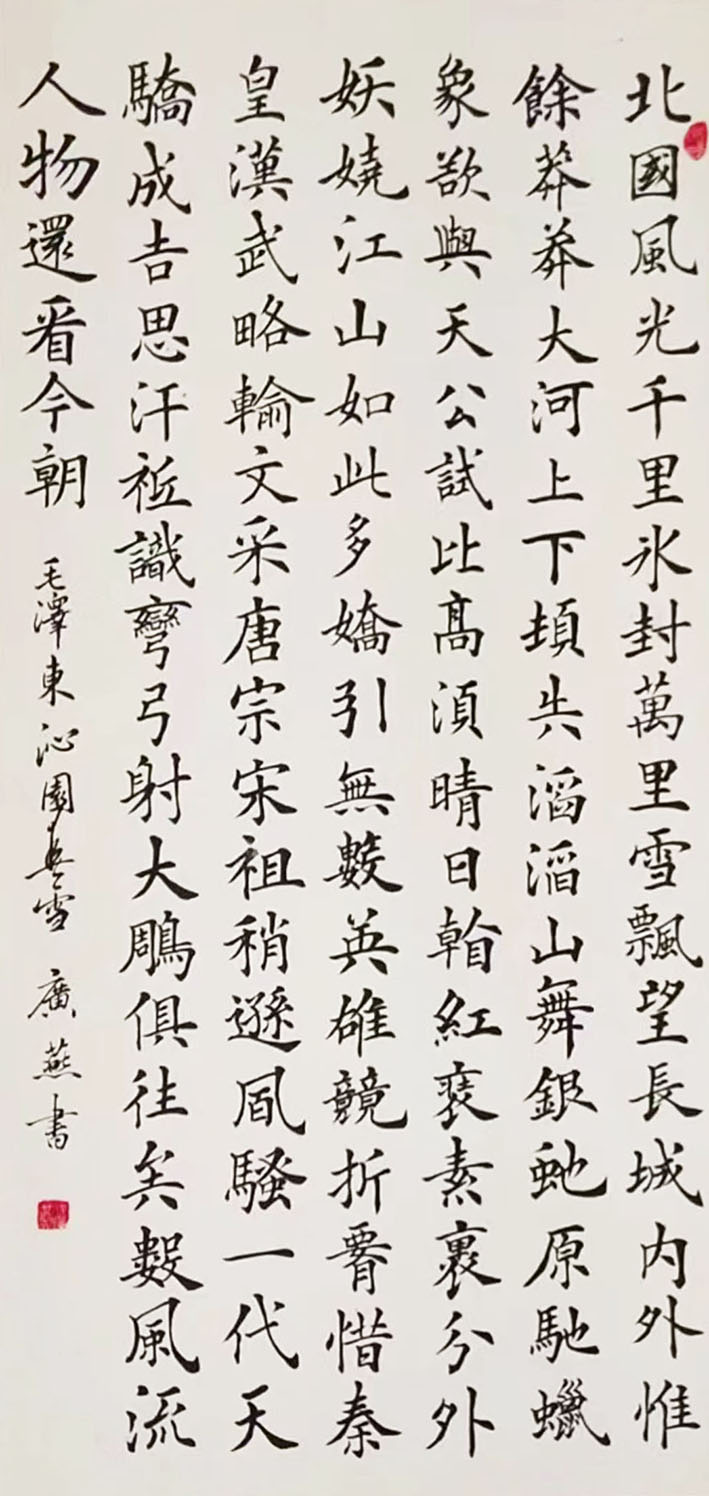 北國風光千里氷封萬里雪飄望長城内外惟
餘莽莽大河上下頓失滔滔山舞銀虵原馳蠟
象欲與天公試比髙須晴日看紅裝素裹分外
妖嬈江山如此多嬌引無數英雄競折腰惜秦
皇漢武略輸文采唐宗宋祖稍遜風騷一代天
驕成吉思汗祗識彎弓射大鵰俱往矣數風流
人物還看今朝 毛澤東沁園春雪 廣燕書